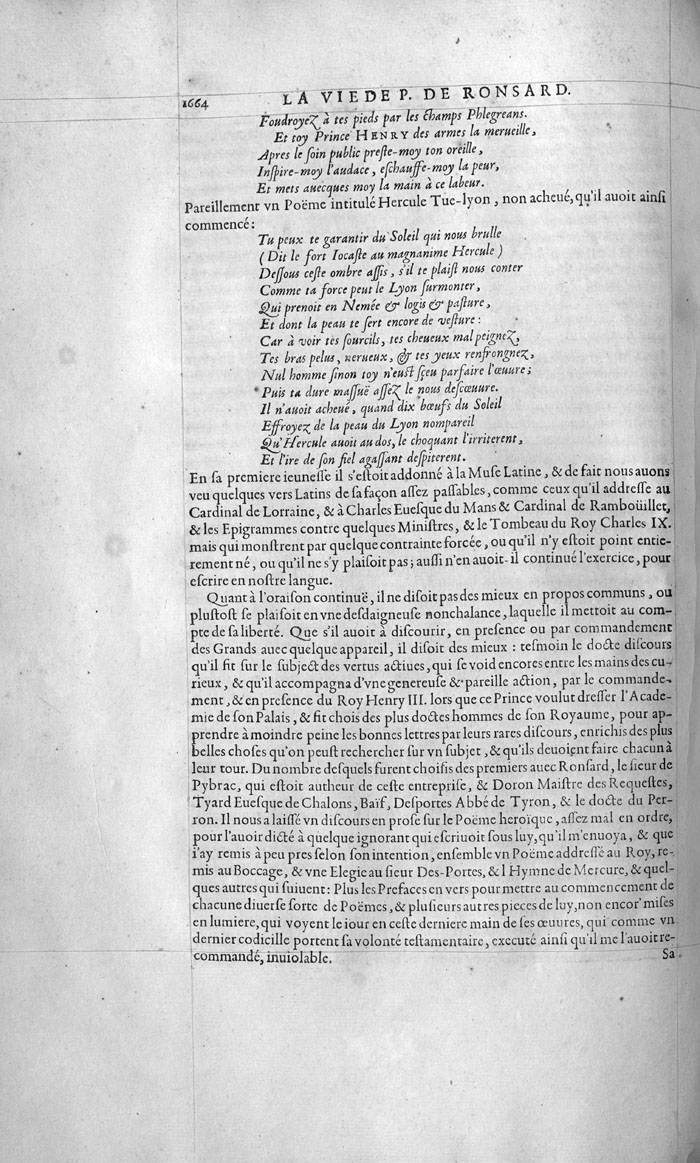 1664 LA VIE DE P. DE RONSARD.
Foudroyez à tes pieds par les champs Phlegreans.
Et toy Prince HENRY des armes la merueille,
Apres le soin public preste-moy ton oreille,
Inspire-moy l'audace, eschauffe-moy la peur,
Et mets auecques moy la main à ce labeur.
Pareillement vn Poëme intitulé Hercule Tue-lyon, non acheué, qu'il auoit ainsi
commencé:
Tu peux te garantir du Soleil qui nous brulle
(Dit le fort Iocaste au magnanime Hercule)
Dessous ceste ombre assis, s'il te plaist nous conter
Comme ta force peut le Lyon surmonter,
Qui prenoit en Nemée & logis & pasture,
Et dont la peau te sert encore de vesture:
Car à voir tes sourcils, tes cheueux mal peignez,
Tes bras pelus, nerueux, & tes yeux renfrongnez,
Nul homme sinon toy n'eust sçeu parfaire l'œuure;
Puis ta dure massuë assez le nous descœuure.
Il n'auoit acheué, quand dix bœufs du Soleil
Effroyez de la peau du Lyon nompareil
Qu'Hercule auoit au dos, le choquant l'irriterent,
Et l'ire de son fiel agassant despiterent.
En sa premiere ieunesse il s'estoit addonné à la Muse Latine, & de fait nous auons
veu quelques vers Latins de sa façon assez passables, comme ceux qu'il addresse au
Cardinal de Lorraine, & à Charles Euesque du Mans & Cardinal de Rambouïllet,
& les Epigrammes contre quelques Ministres, & le Tombeau du Roy Charles IX.
mais qui monstrent par quelque contrainte forcée, ou qu'il n'y estoit point entie-
rement né, ou qu'il ne s'y plaisoit pas; aussi n'en auoit-il continué l'exercice, pour
escrire en nostre langue.
Quant à l'oraison continuë, il ne disoit pas des mieux en propos communs, ou
plustost se plaisoit en vne desdaigneuse nonchalance, laquelle il mettoit au com-
pte de sa liberté. Que s'il auoit à discourir, en presence ou par commandement
des Grands auec quelque appareil, il disoit des mieux: tesmoin le docte discours
qu'il fit sur le subject des vertus actiues, qui se void encores entre les mains des cu-
rieux, & qu'il accompagna d'vne genereuse & pareille action, par le commande-
ment, & en presence du Roy Henry III. lors que ce Prince voulut dresser l'Acade-
mie de son Palais, & fit chois des plus doctes hommes de son Royaume, pour ap-
prendre à moindre peine les bonnes lettres par leurs rares discours, enrichis des plus
belles choses qu'on peust rechercher sur vn subjet, & qu'ils deuoient faire chacun à
leur tour. Du nombre desquels furent choisis des premiers auec Ronsard, le sieur de
Pybrac, qui estoit autheur de ceste entreprise, & Doron Maistre des Requestes,
Tyard Euesque de Chalons, Baïf, Desportes Abbé de Tyron, & le docte du Per-
ron. Il nous a laissé vn discours en prose sur le Poëme heroïque, assez mal en ordre,
pour l'auoir dicté à quelque ignorant qui escriuoit sous luy, qu'il m'enuoya, & que
i'ay remis à peu pres selon son intention, ensemble vn Poëme addressé au Roy, re-
mis au Boccage, & vne Elegie au sieur Des-Portes, & l Hymne de Mercure, & quel-
ques autres qui suiuent: Plus les Prefaces en vers pour mettre au commencement de
chacune diuerse sorte de Poëmes, & plusieurs autres pieces de luy, non encor' mises
en lumiere, qui voyent le iour en ceste derniere main de ses œuures, qui comme vn
dernier codicille portent sa volonté testamentaire, executé ainsi qu'il me l'auoit re-
commandé, inuiolable. Sa